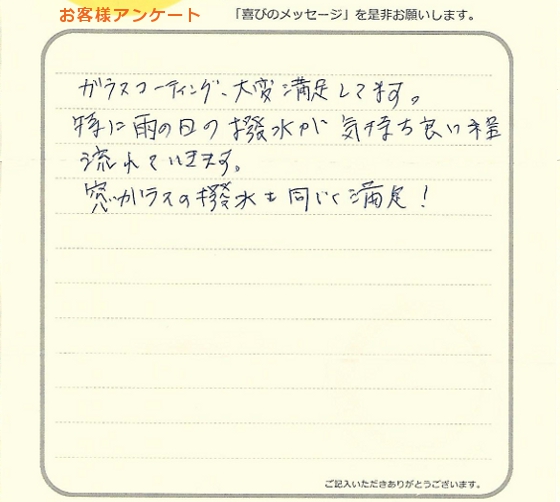 お客様アンケート 「喜びのメッセージ」を是非お願いします。
ガラスコーティング、大変満足してます。
特に雨の日の撥水が気持ち良い程
流れていきます。
窓ガラスの撥水も同じく満足！
ご記入いただきありがとうございます。